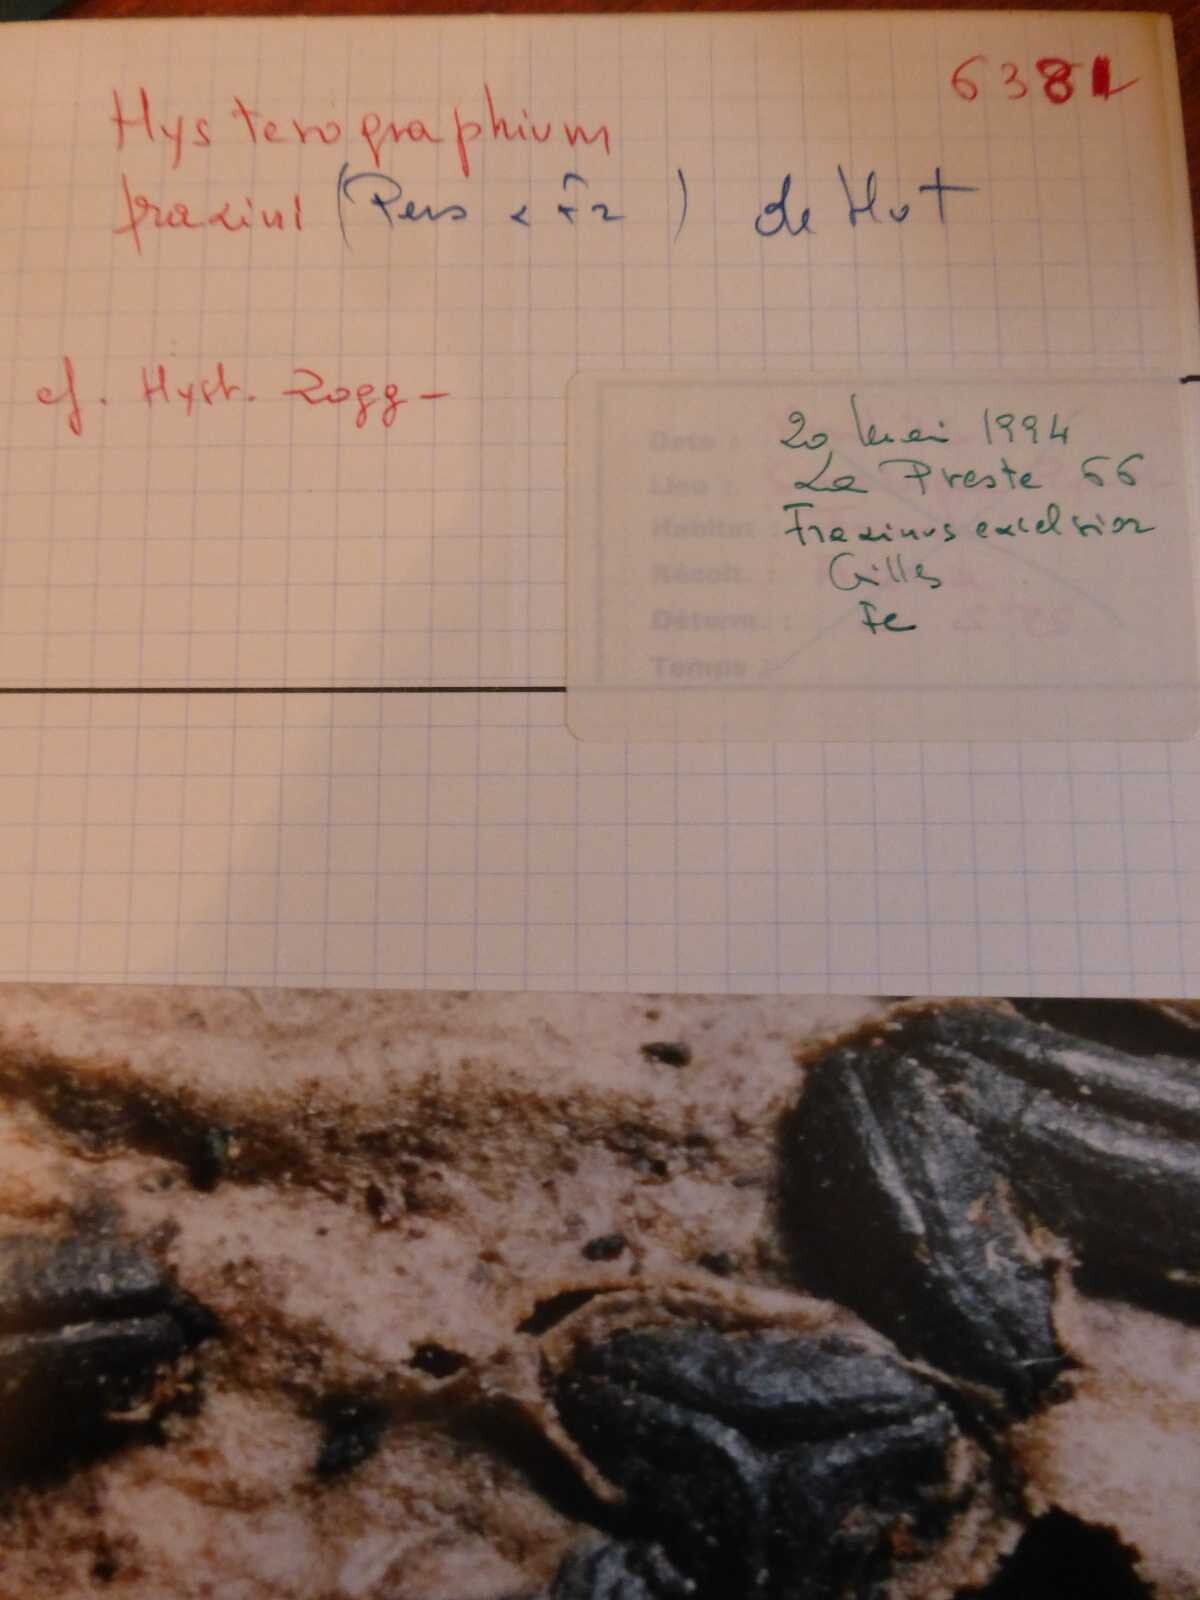 6381
Hysterographium
fraxini (Pers x Fr) de Not
cf. Hyst. Zogg -
Date : 20 Mai 1994
Lieu : La Preste 66
Habitat : Fraxinus excelsior
Récolt. : Gilles
Déterm. : Fc
Temps :